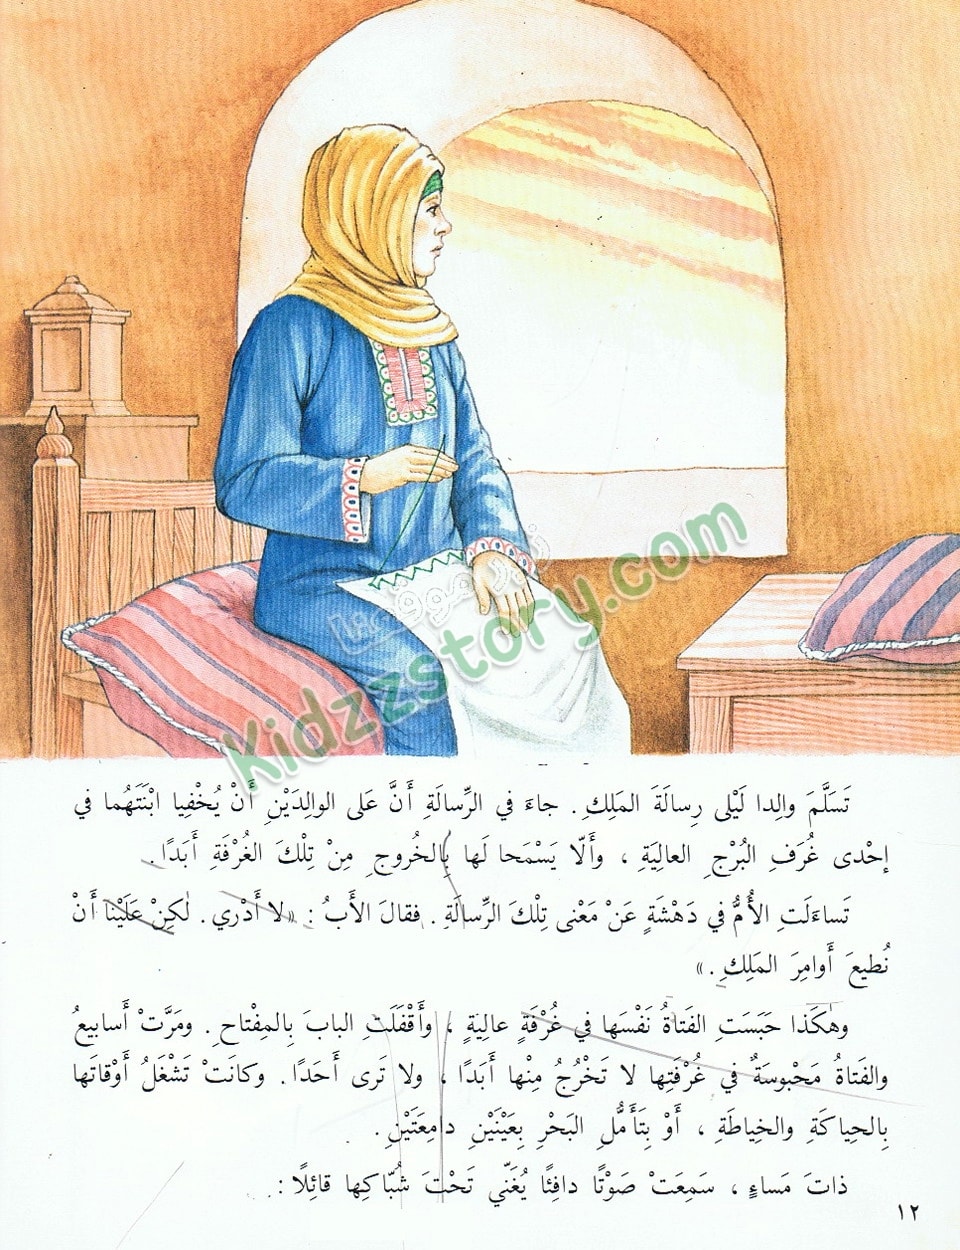 Kidzzstory.com
تَسَلَّمَ والِدا لَيْلى رِسالَةَ المَلِكِ. جاءَ في الرِّسالَةِ أَنَّ عَلى الوالِدَيْنِ أَنْ يُخْفِيا ابْنَتَهُما في
إحْدى غُرَفِ البُرْجِ العالِيَةِ ، وأَلّا يَسْمَحا لَها بِالخُروجِ مِنْ تِلْكَ الغُرْفَةِ أَبَدًا.
تَساءَلَتِ الأُمُّ في دَهْشَةٍ عَنْ مَعْنى تِلْكَ الرِّسالَةِ. فقالَ الأَبُ : «لا أَدْري. لٰكِنْ عَلَيْنا أَنْ
نُطيعَ أَوامِرَ المَلِكِ.»
وهٰكَذا حَبَسَتِ الفَتاةُ نَفْسَها في غُرْفَةٍ عالِيَةٍ ، وأَقْفَلَتِ البابَ بِالمِفْتاحِ. ومَرَّتْ أَسابيعُ
والفَتاةُ مَحْبوسَةٌ في غُرْفَتِها لا تَخْرُجُ مِنْها أَبَدًا ، ولا تَرى أَحَدًا. وكانَتْ تَشْغَلُ أَوْقاتَها
بِالحِياكَةِ والخِياطَةِ ، أَوْ بِتَأَمُّلِ البَحْرِ بِعَيْنَيْنِ دامِعَتَيْنِ.
ذاتَ مَساءٍ ، سَمِعَتْ صَوْتًا دافِئًا يُغَنّي تَحْتَ شُبّاكِها قائِلًا :
١٢